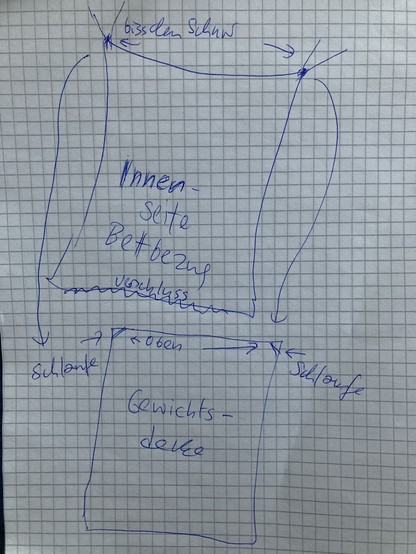 bisschen Schnur
Innen-
Seite
Bettbezug
Verschluss
oben
Schlaufe
Schlaufe
Gewichts-
decke